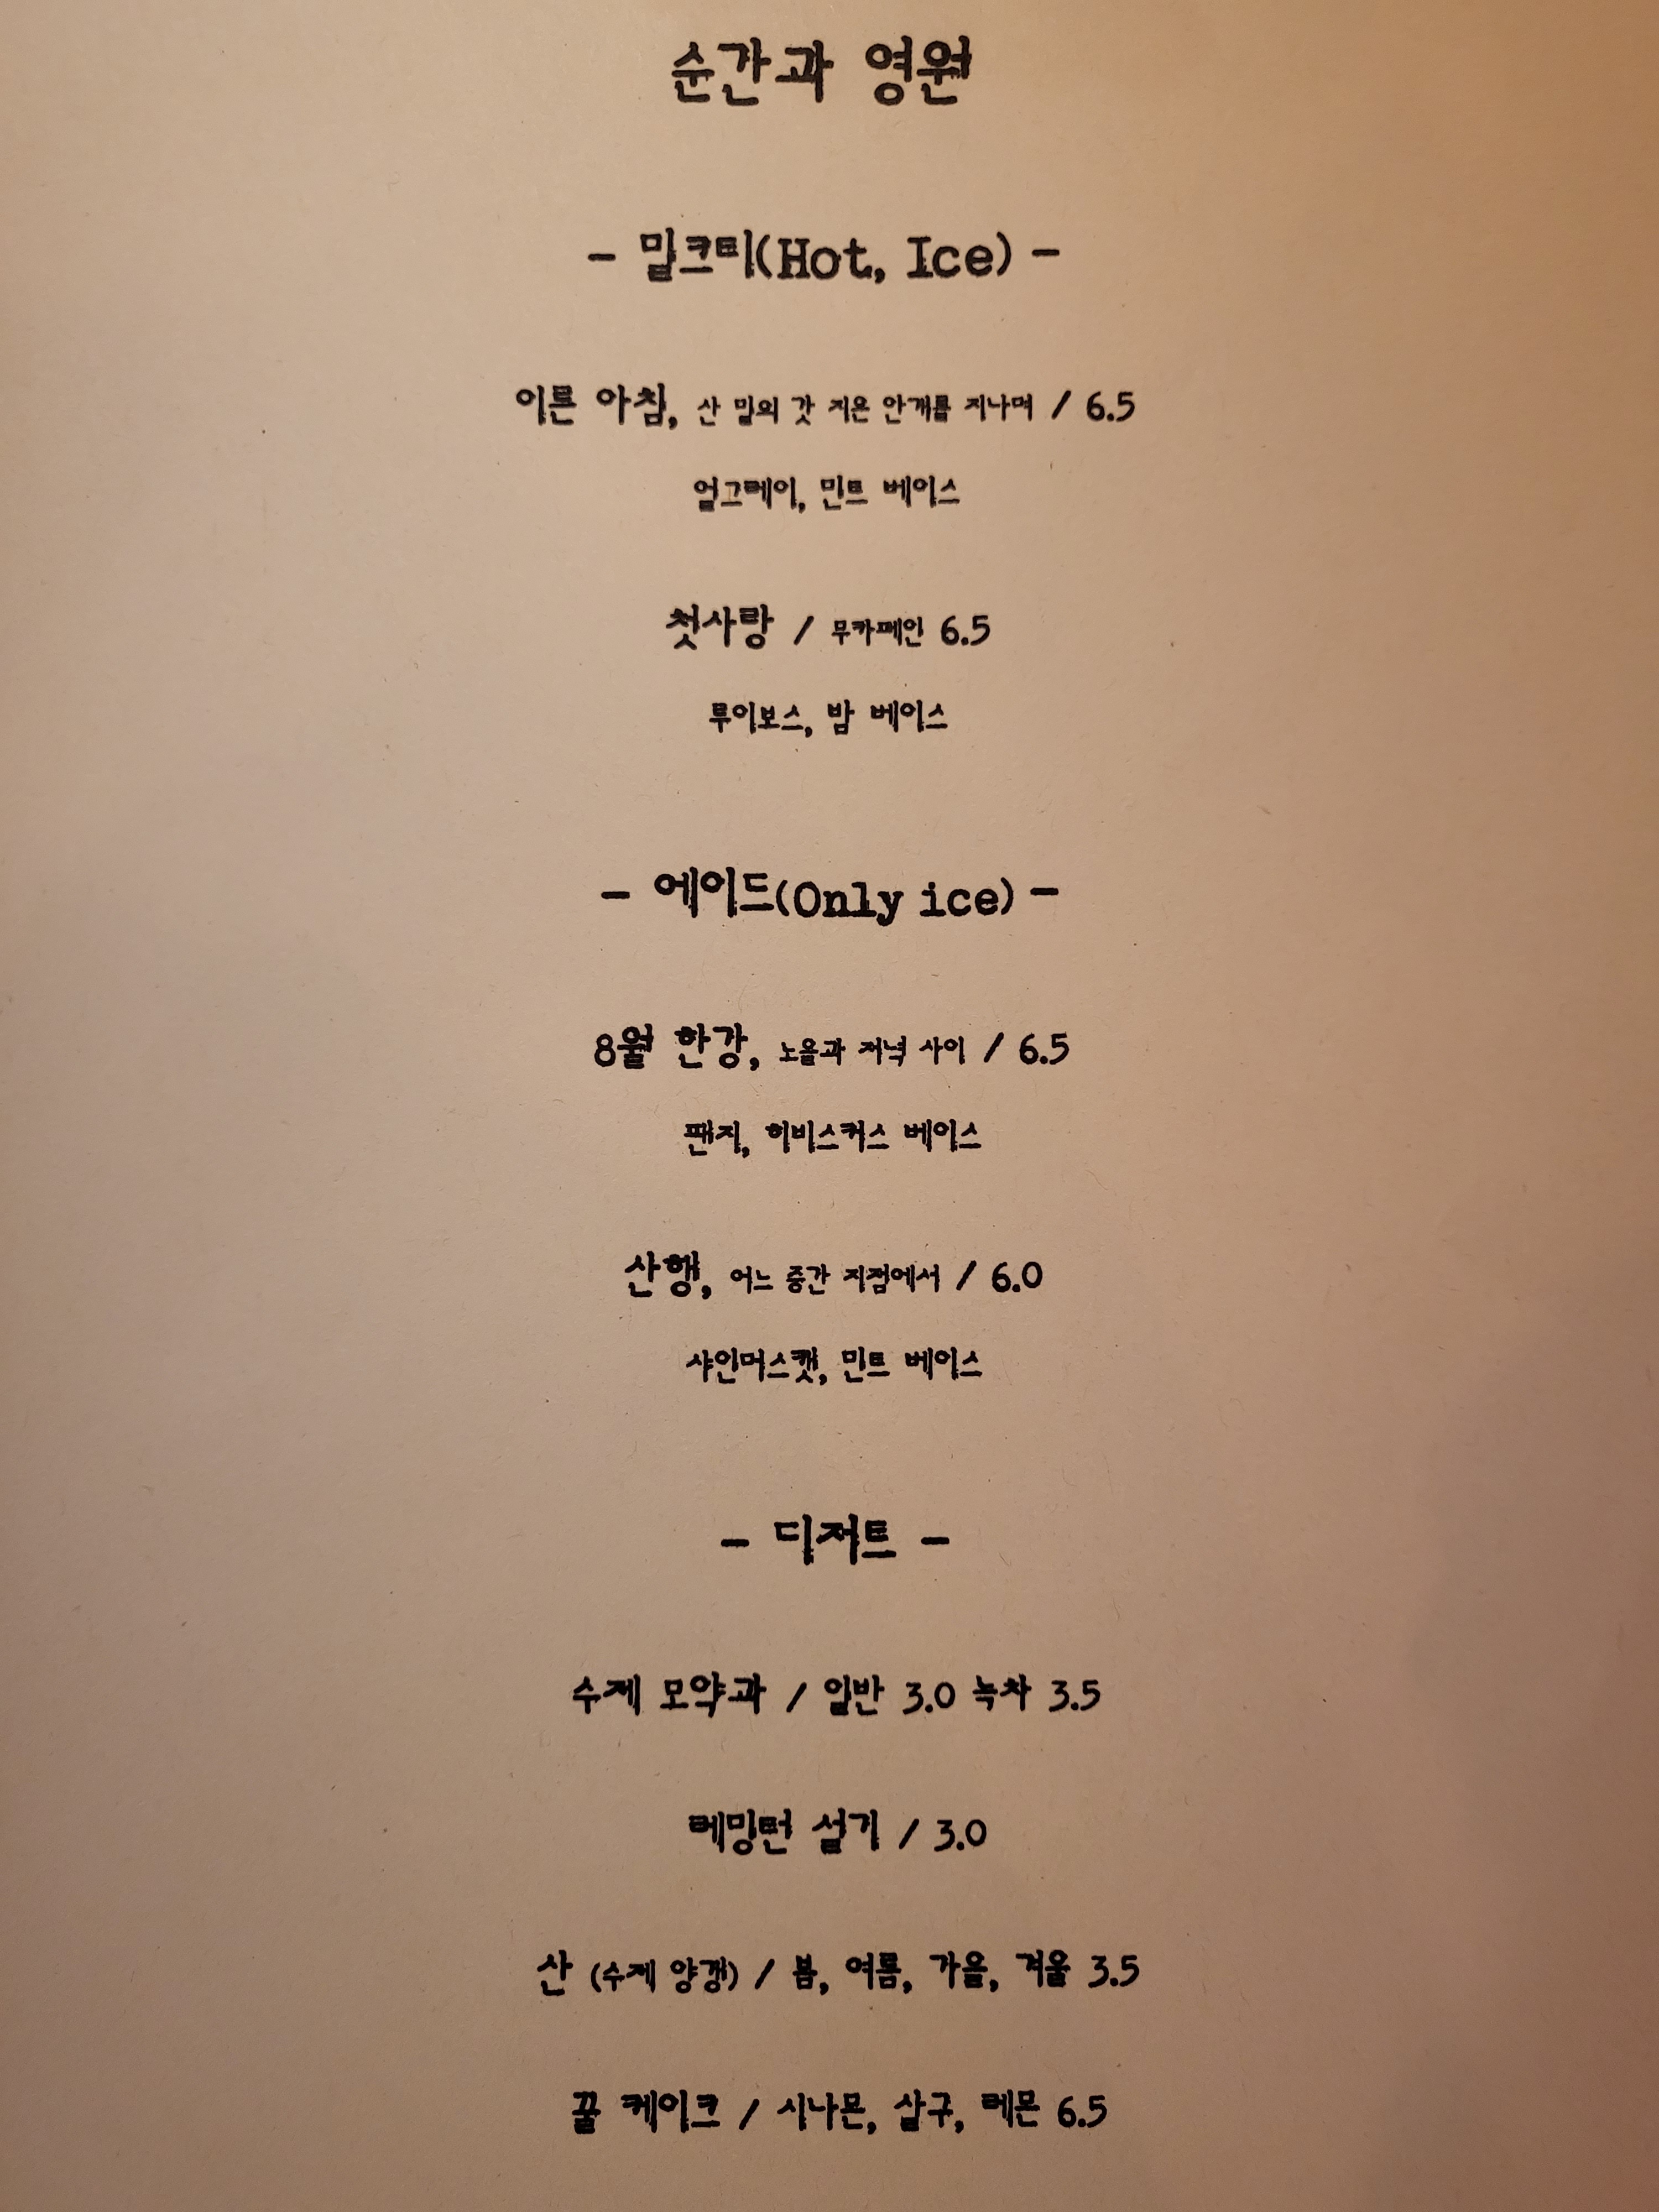 순간과 영원
- 밀크티(Hot, Ice) -
이른 아침, 산 밑의 갓 지은 안개를 지나며 / 6.5
얼그레이, 민트 베이스
첫사랑 / 무카페인 6.5
루이보스, 밤 베이스
- 에이드(Only ice) -
8월 한강, 노을과 저녁 사이 / 6.5
팬지, 히비스커스 베이스
산행, 어느 중간 지점에서 / 6.0
샤인머스캣, 민트 베이스
- 디저트 -
수제 모약과 / 일반 3.0 녹차 3.5
레밍턴 설기 / 3.0
산 (수제 양갱) / 봄, 여름, 가을, 겨울 3.5
꿀 케이크 / 시나몬, 살구, 레몬 6.5